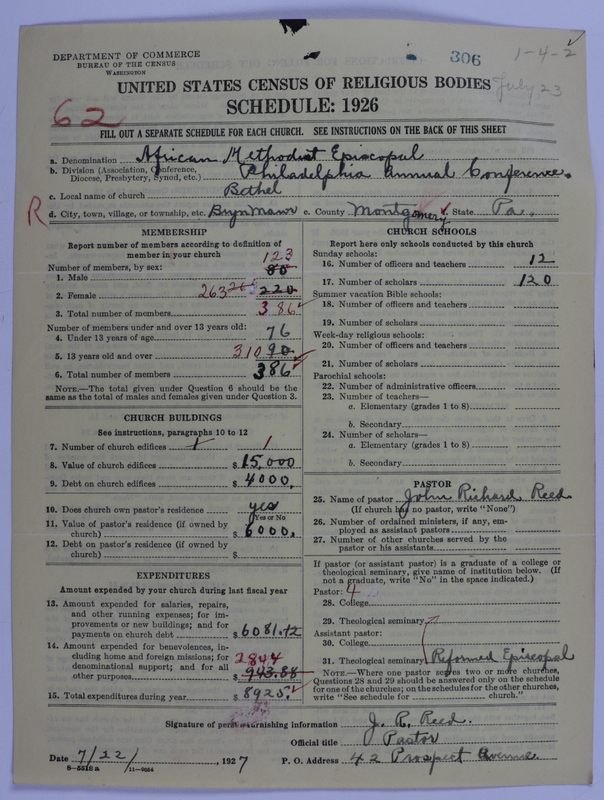 DEPARTMENT OF COMMERCE
BUREAU OF THE CENSUS
WASHINGTON
306
1-4-2
UNITED STATES CENSUS OF RELIGIOUS BODIES
July 23
SCHEDULE: 1926
62
FILL OUT A SEPARATE SCHEDULE FOR EACH CHURCH. SEE INSTRUCTIONS ON THE BACK OF THIS SHEET
a. Denomination African Methodist Episcopal
b. Division (Association, Conference, Diocese, Presbytery, Synod, etc.) Philadelphia Annual Conference.
c. Local name of church Bethel
R d. City, town, village, or township, etc. Bryn Mawr e. County Montgomery f. State Pa.
MEMBERSHIP
Report number of members according to definition of member in your church
Number of members, by sex: 123
1. Male 80
2. Female 263 220
3. Total number of members 386
Number of members under and over 13 years old:
4. Under 13 years of age 76
5. 13 years old and over 310 90
6. Total number of members 386
NOTE.—The total given under Question 6 should be the same as the total of males and females given under Question 3.
CHURCH BUILDINGS
See instructions, paragraphs 10 to 12
7. Number of church edifices 1 1
8. Value of church edifices $ 15,000
9. Debt on church edifices $ 4000.
10. Does church own pastor's residence yes
(Yes or No)
11. Value of pastor's residence (if owned by church) $ 6000.
12. Debt on pastor's residence (if owned by church) $
EXPENDITURES
Amount expended by your church during last fiscal year
13. Amount expended for salaries, repairs, and other running expenses; for improvements or new buildings; and for payments on church debt $ 6081.12
14. Amount expended for benevolences, including home and foreign missions; for denominational support; and for all other purposes 2844 $ 943.88
15. Total expenditures during year $ 8925.
CHURCH SCHOOLS
Report here only schools conducted by this church
Sunday schools:
16. Number of officers and teachers 12
17. Number of scholars 120
Summer vacation Bible schools:
18. Number of officers and teachers
19. Number of scholars
Week-day religious schools:
20. Number of officers and teachers
21. Number of scholars
Parochial schools:
22. Number of administrative officers
23. Number of teachers—
a. Elementary (grades 1 to 8)
b. Secondary
24. Number of scholars—
a. Elementary (grades 1 to 8)
b. Secondary
PASTOR
25. Name of pastor John Richard Reed
(If church has no pastor, write "None")
26. Number of ordained ministers, if any, employed as assistant pastors
27. Number of other churches served by the pastor or his assistants
If pastor (or assistant pastor) is a graduate of a college or theological seminary, give name of institution below. (If not a graduate, write "No" in the space indicated.)
Pastor: 4
28. College
29. Theological seminary
Assistant pastor:
30. College
31. Theological seminary Reformed Episcopal
NOTE.—Where one pastor serves two or more churches, Questions 28 and 29 should be answered only on the schedule for one of the churches; on the schedules for the other churches, write "See schedule for church."
Signature of person furnishing information J. R. Reed.
Official title Pastor
Date 7/22, 1927 P. O. Address 42 Prospect Avenue.